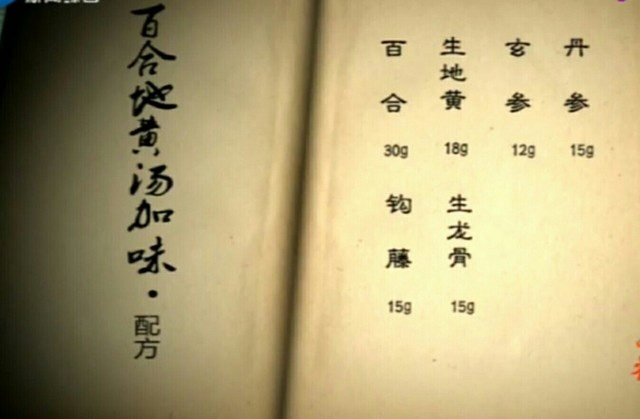 百合地黄汤加味·配方
百合 生地黄 玄参 丹参
30g 18g 12g 15g
钩藤 生龙骨
15g 15g